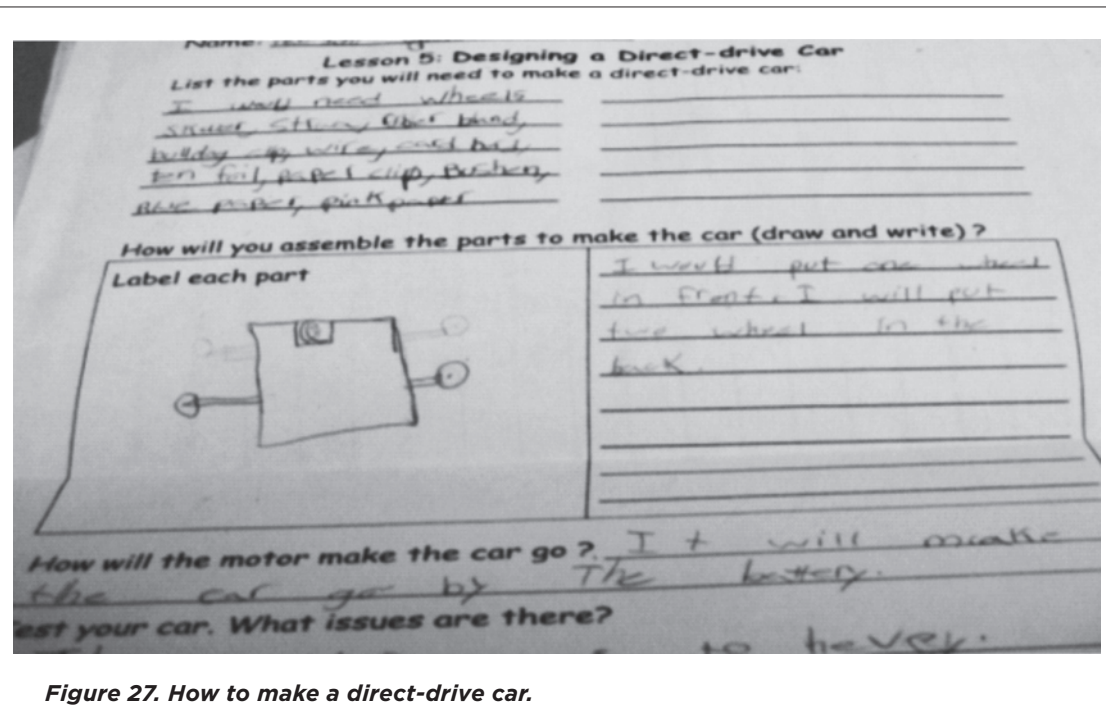 Name:
Lesson 5: Designing a Direct-drive Car
List the parts you will need to make a direct-drive car:
I would need wheels
band,
wire,
foil, paper clip,
Blue paper, pink paper
How will you assemble the parts to make the car (draw and write)?
Label each part
I would put one wheel
in front. I will put
two wheel in the
back.
How will the motor make the car go? It will make
the car go by The battery.
est your car. What issues are there?
to hevey.
Figure 27. How to make a direct-drive car.